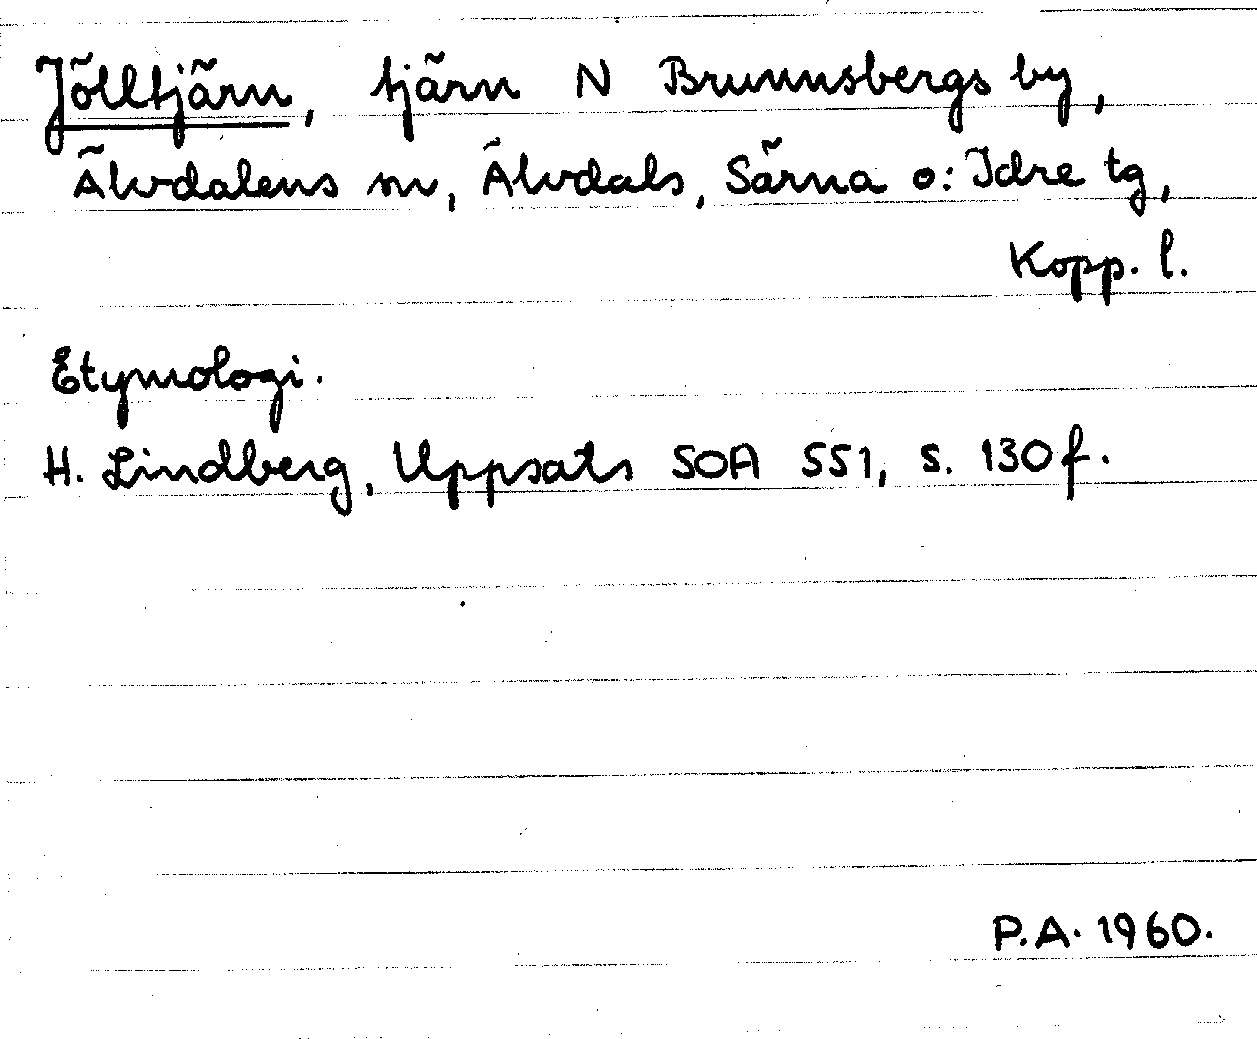 Jölltjärn, tjärn N Brunnsbergs by,
Älvdalens sn, Älvdals, Särna o: Idre tg,
Kopp. l.
Etymologi.
H. Lindberg, Uppsats SOA 551, s. 130 f.
P.A. 1960.